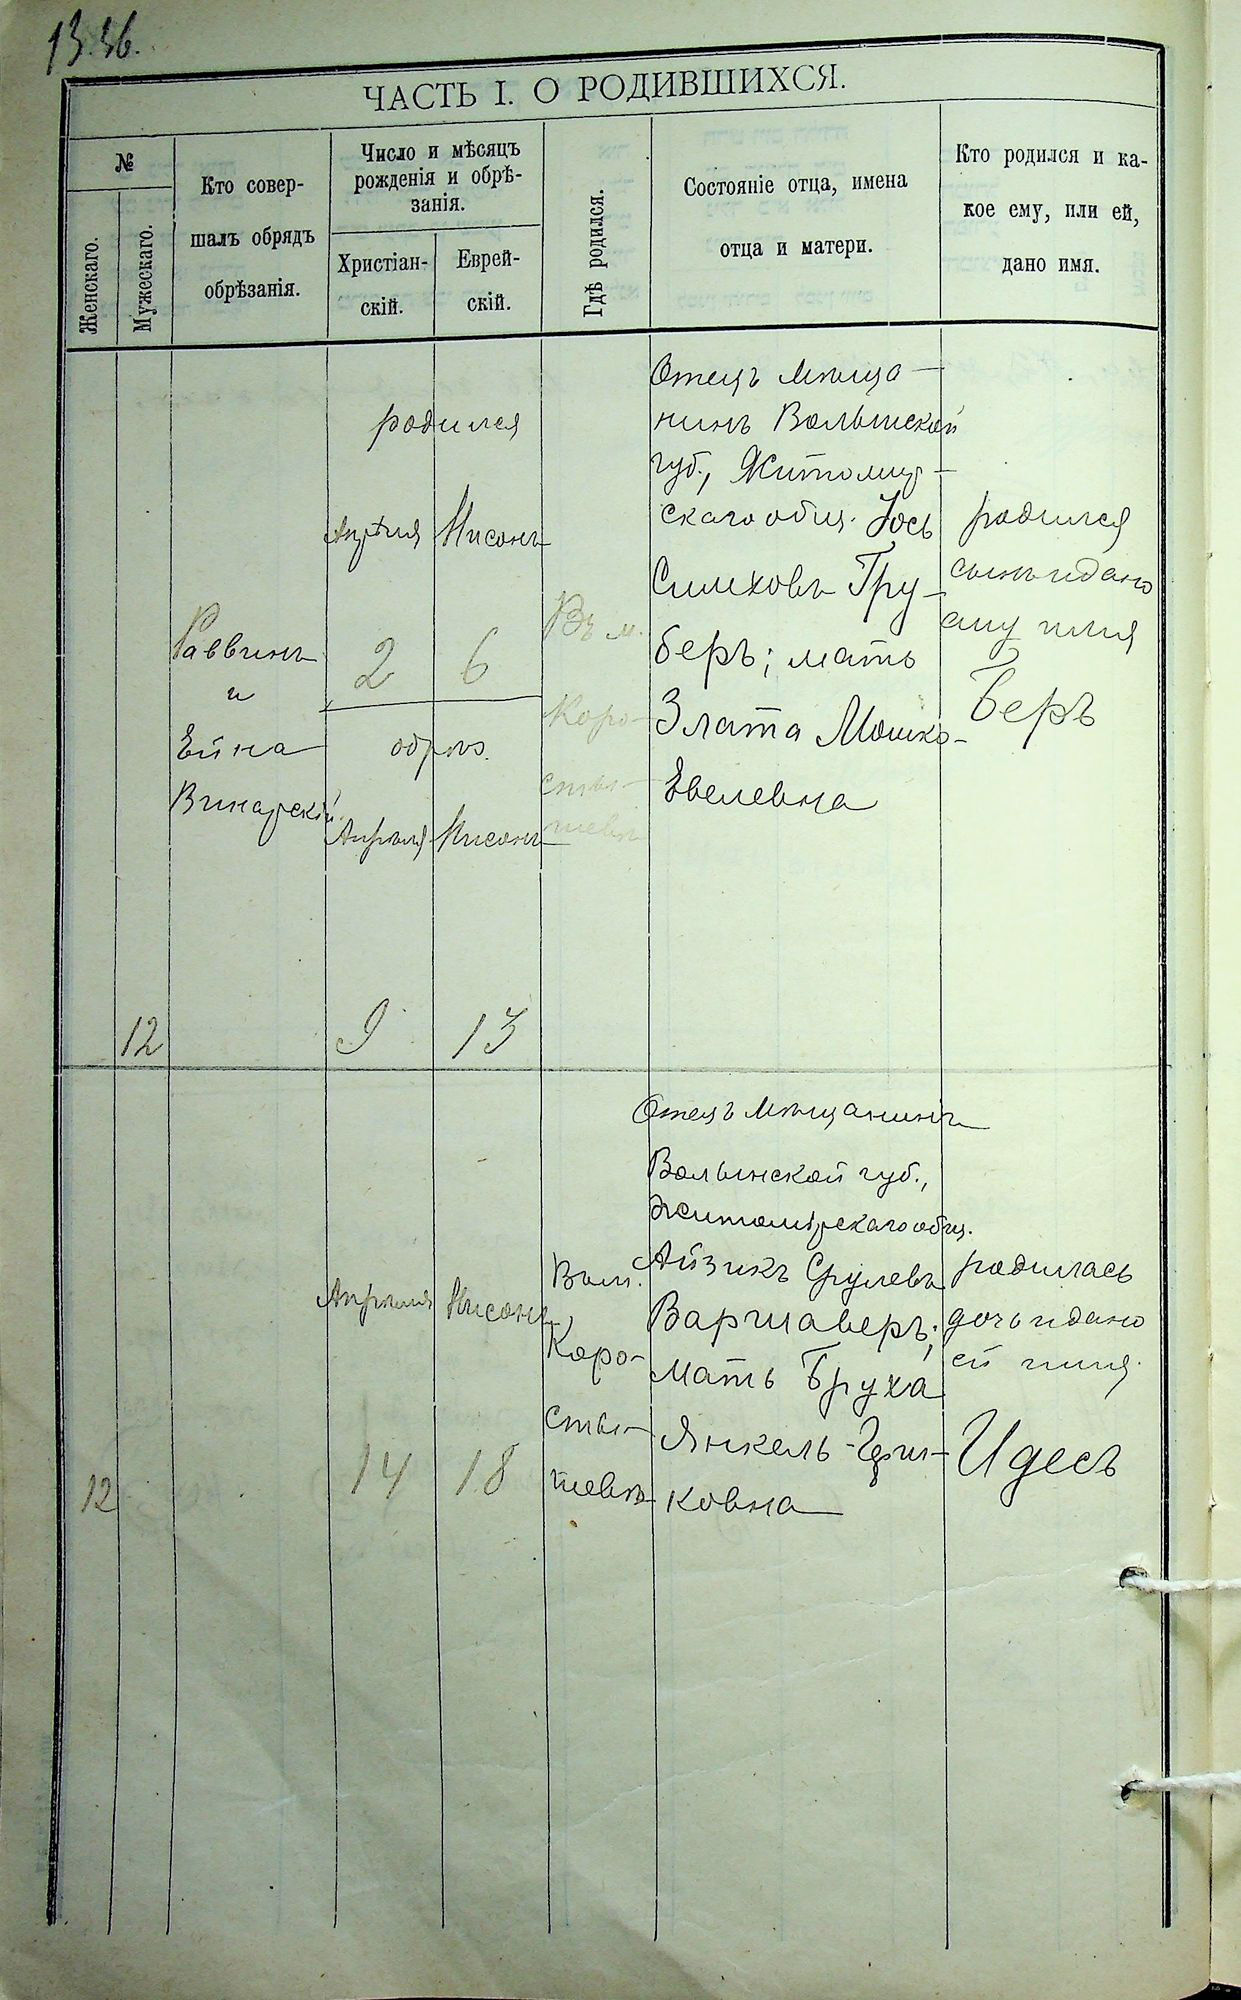 13.36.
ЧАСТЬ I. О РОДИВШИХСЯ.
№
Женскаго.
Мужескаго.
Кто совер-
шалъ обрядъ
обрѣзанія.
Число и мѣсяцъ
рожденія и обрѣ-
занія.
Христіан-
скій.
Еврей-
скій.
Гдѣ родился.
Состояніе отца, имена
отца и матери.
Кто родился и ка-
кое ему, или ей,
дано имя.
12
Раввинъ
и
Ейна
Винарскій
родился
Апрѣля Нисонъ
2 6
обрѣз.
Апрѣля Нисонъ
9 13
Въ м.
Коро-
сты-
шевѣ
Отецъ мѣща-
нинъ Волынской
губ., Житомир-
скаго общ. Іось
Симховъ Гру-
беръ; мать
Злата Мошко-
Евелевна
родился
сынъ и дано
ему имя
Беръ
12
Апрѣля Нисонъ
14 18
Въ м.
Коро-
сты-
шевѣ
Отецъ мѣщанинъ
Волынской губ.,
Житомірскаго общ.
Айзикъ Срулевъ
Варшаверъ;
мать Бруха
Янкель-
ковна
родилась
дочь и дано
ей имя
Идесъ